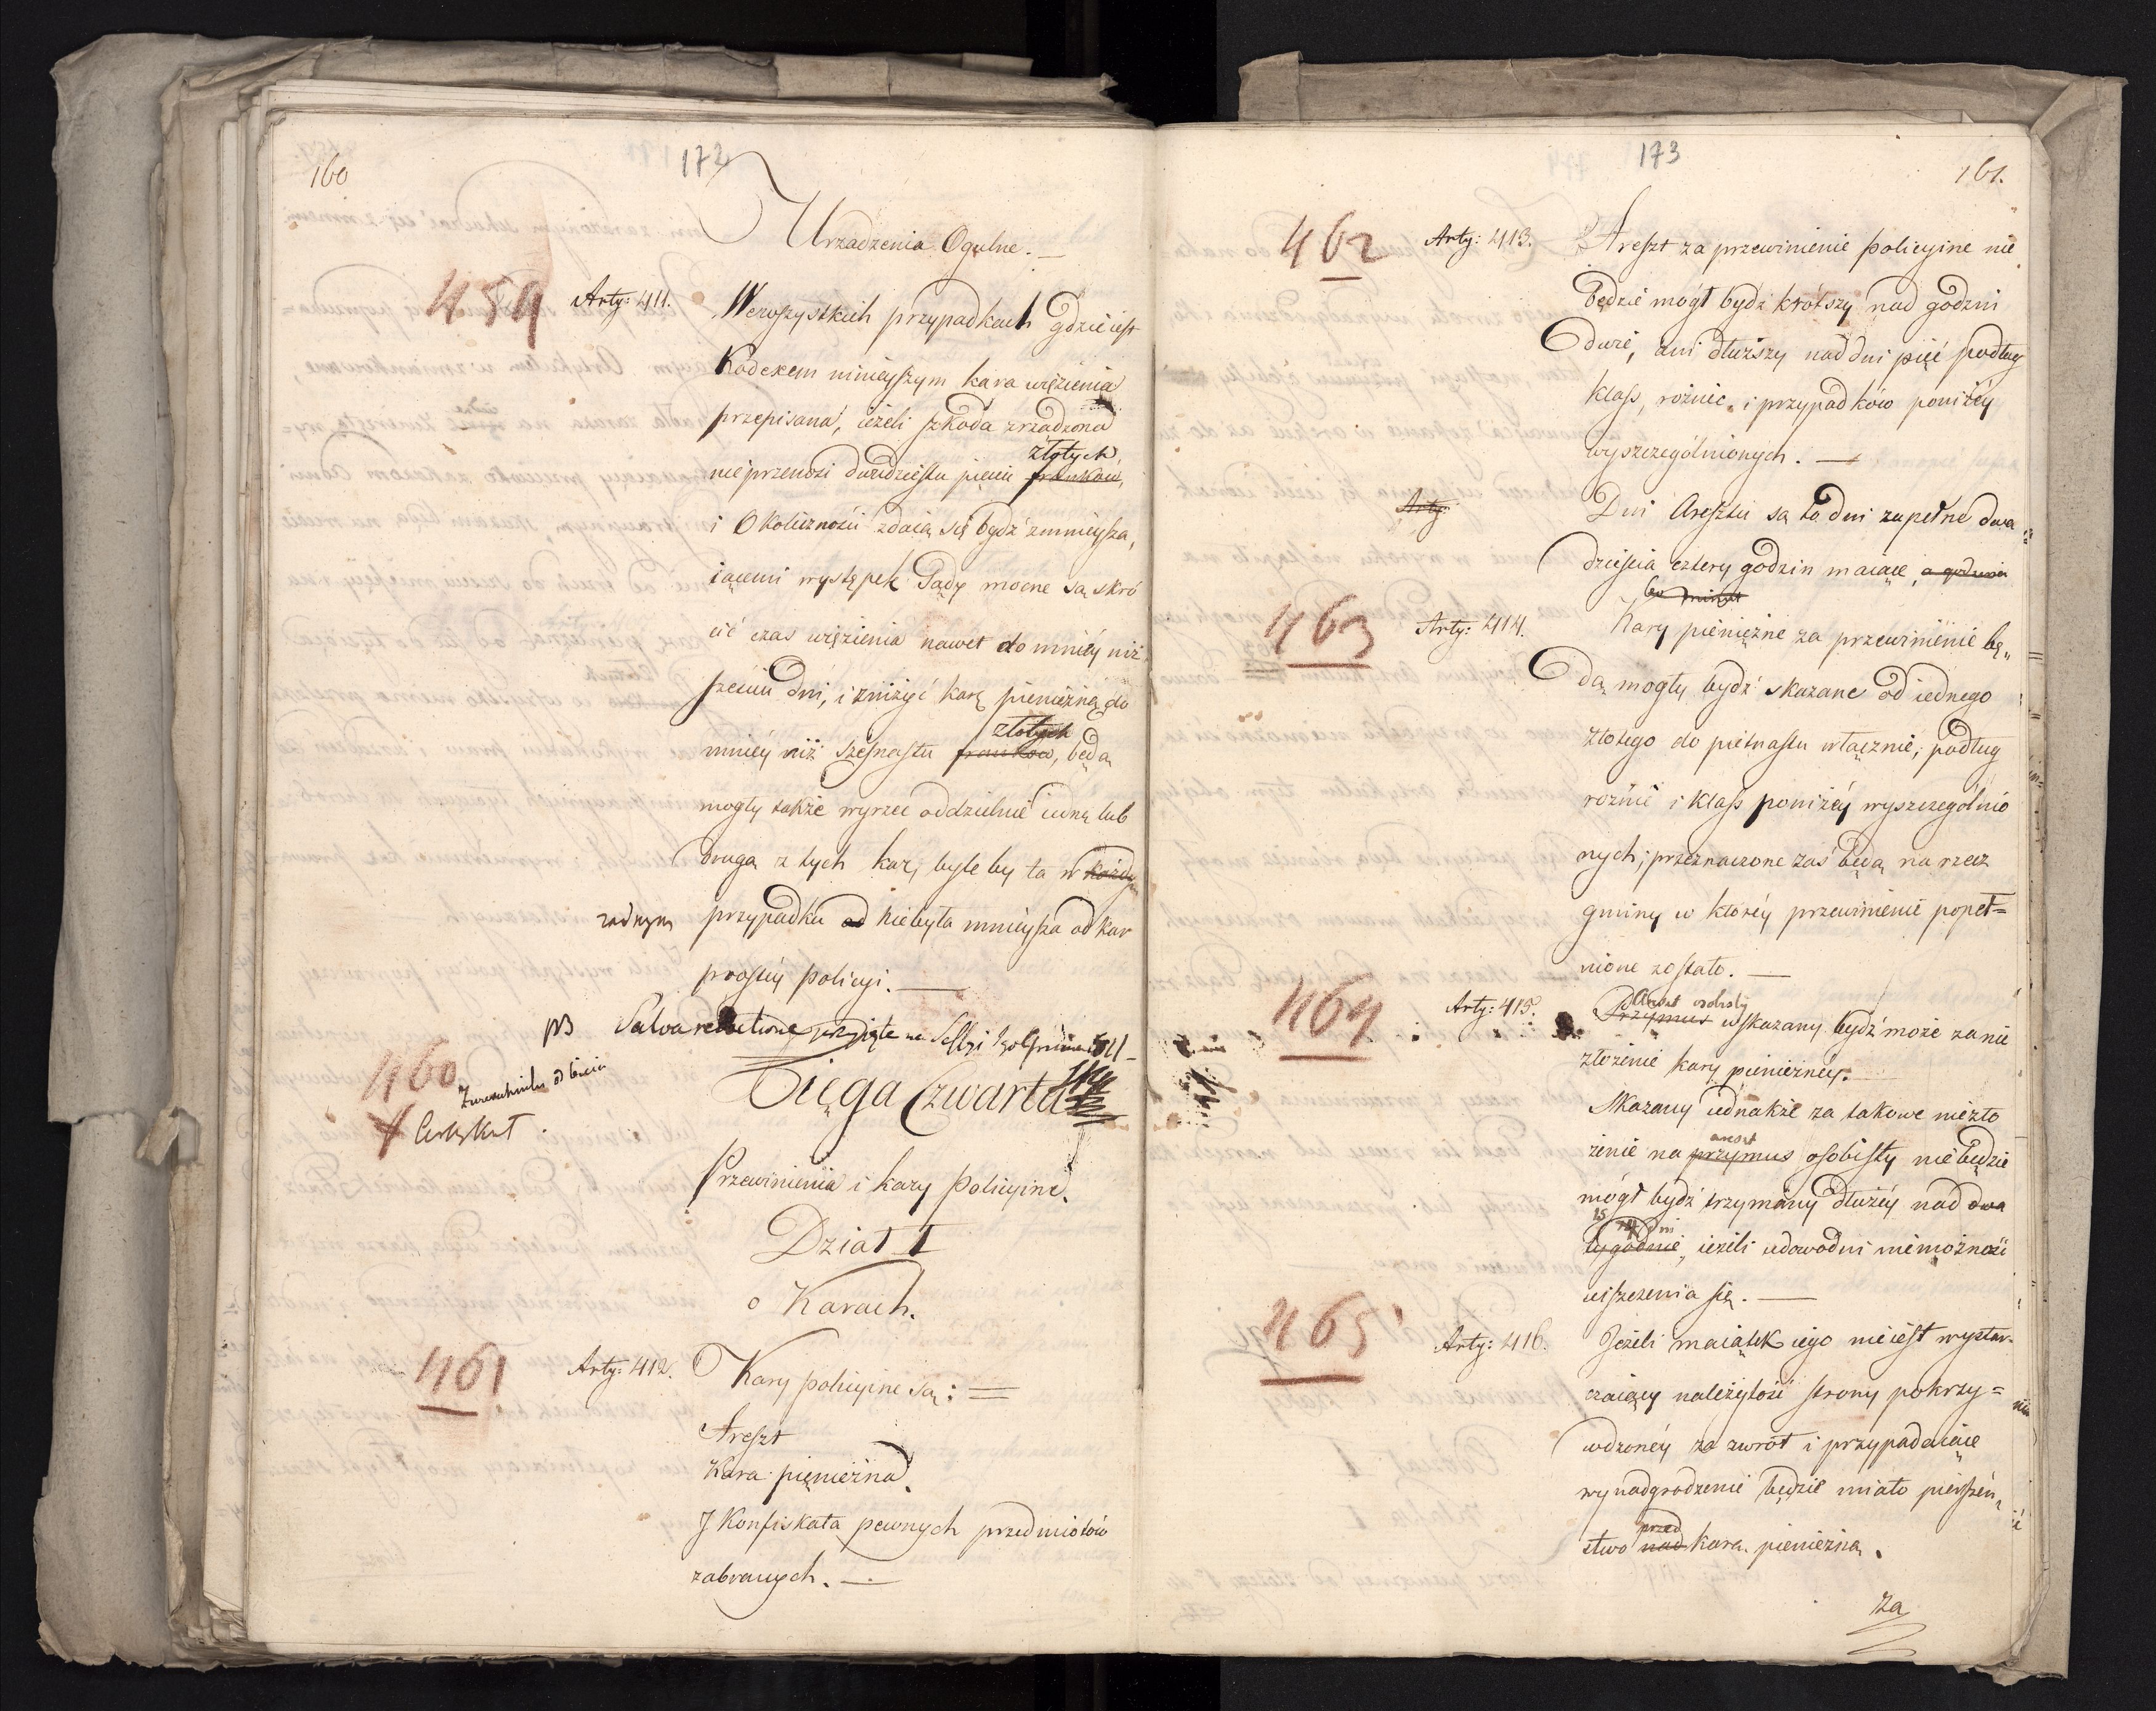 160
172
Urządzenia Ogulne. —
459
Arty: 411.
Wewszystkich przypadkach gdzie iest
Kodexem ninieyszym kara więzienia
przepisana, ieżeli szkoda zrządzona
złotych
nieprzenosi dwudziestu pięciu franków,
i Okoliczności zdaią się bydź zmnieysza„
iącemi występek Sądy mocne są skró
cić czas więzienia nawet do mniéy niż
sześciu dni, i zniżyć karę pieniężną do
złotych
mniéy niż szesnastu franków, będą
mogły także wyrzec oddzielnie iedną lub
drugą z tych kar, byle by ta w każdy
żadnym
przypadku od niebyła mnieysza od kar
prostéy policyi. —
NB
460
Artykuł
Xięga Czwarta
Przewinienia i kary policyine.
Dział I
o Karach.
461
Arty: 412.
Kary policyine są: =
Areszt
Kara pieniężna.
J Konfiskata pewnych przedmiotów
zabranych. —
173
161.
462
Arty: 413.
Areszt za przewinienie policyine nie
będzie mógł bydź krótszy nad godzin
dwie, ani dłuższy nad dni pięć podług
klass, różnic, i przypadków poniżéy
wyszczególnionych. —
Arty:
Dni Aresztu są to dni zupełne dwa„
dzieścia cztery godzin maiące, a godzina
60 minut
463
Arty: 414.
Kary pieniężne za przewinienie bę„
dą mogły bydź skazane od iednego
złotego do piętnastu włącznie, podług
różnic i klass poniżéy wyszczególnio
nych; przeznaczone zaś będą na rzecz
gminy w któréy przewinienie popeł=
nione zostało. —
464
Arty: 415.
Areszt osobisty
Przymus wskazany bydź może za nie
złożenie kary pieniężnéy. —
Skazany iednakże za takowe niezło
areszt
żenie na przymus osobisty niebędzie
mógł bydź trzymany dłużéy nad dwa
15 dni
tygodnie, ieżeli udowodni niemożność
uiszczenia się. —
465
Arty: 416.
Jeżeli maiątek iego nieiest wystar„
czaiący należytość strony pokrzy=
wdzonéy za zwrót i przypadaiące
wynadgrodzenie będzie miało pierszeń„
przed
stwo nad karą pieniężną.
Za